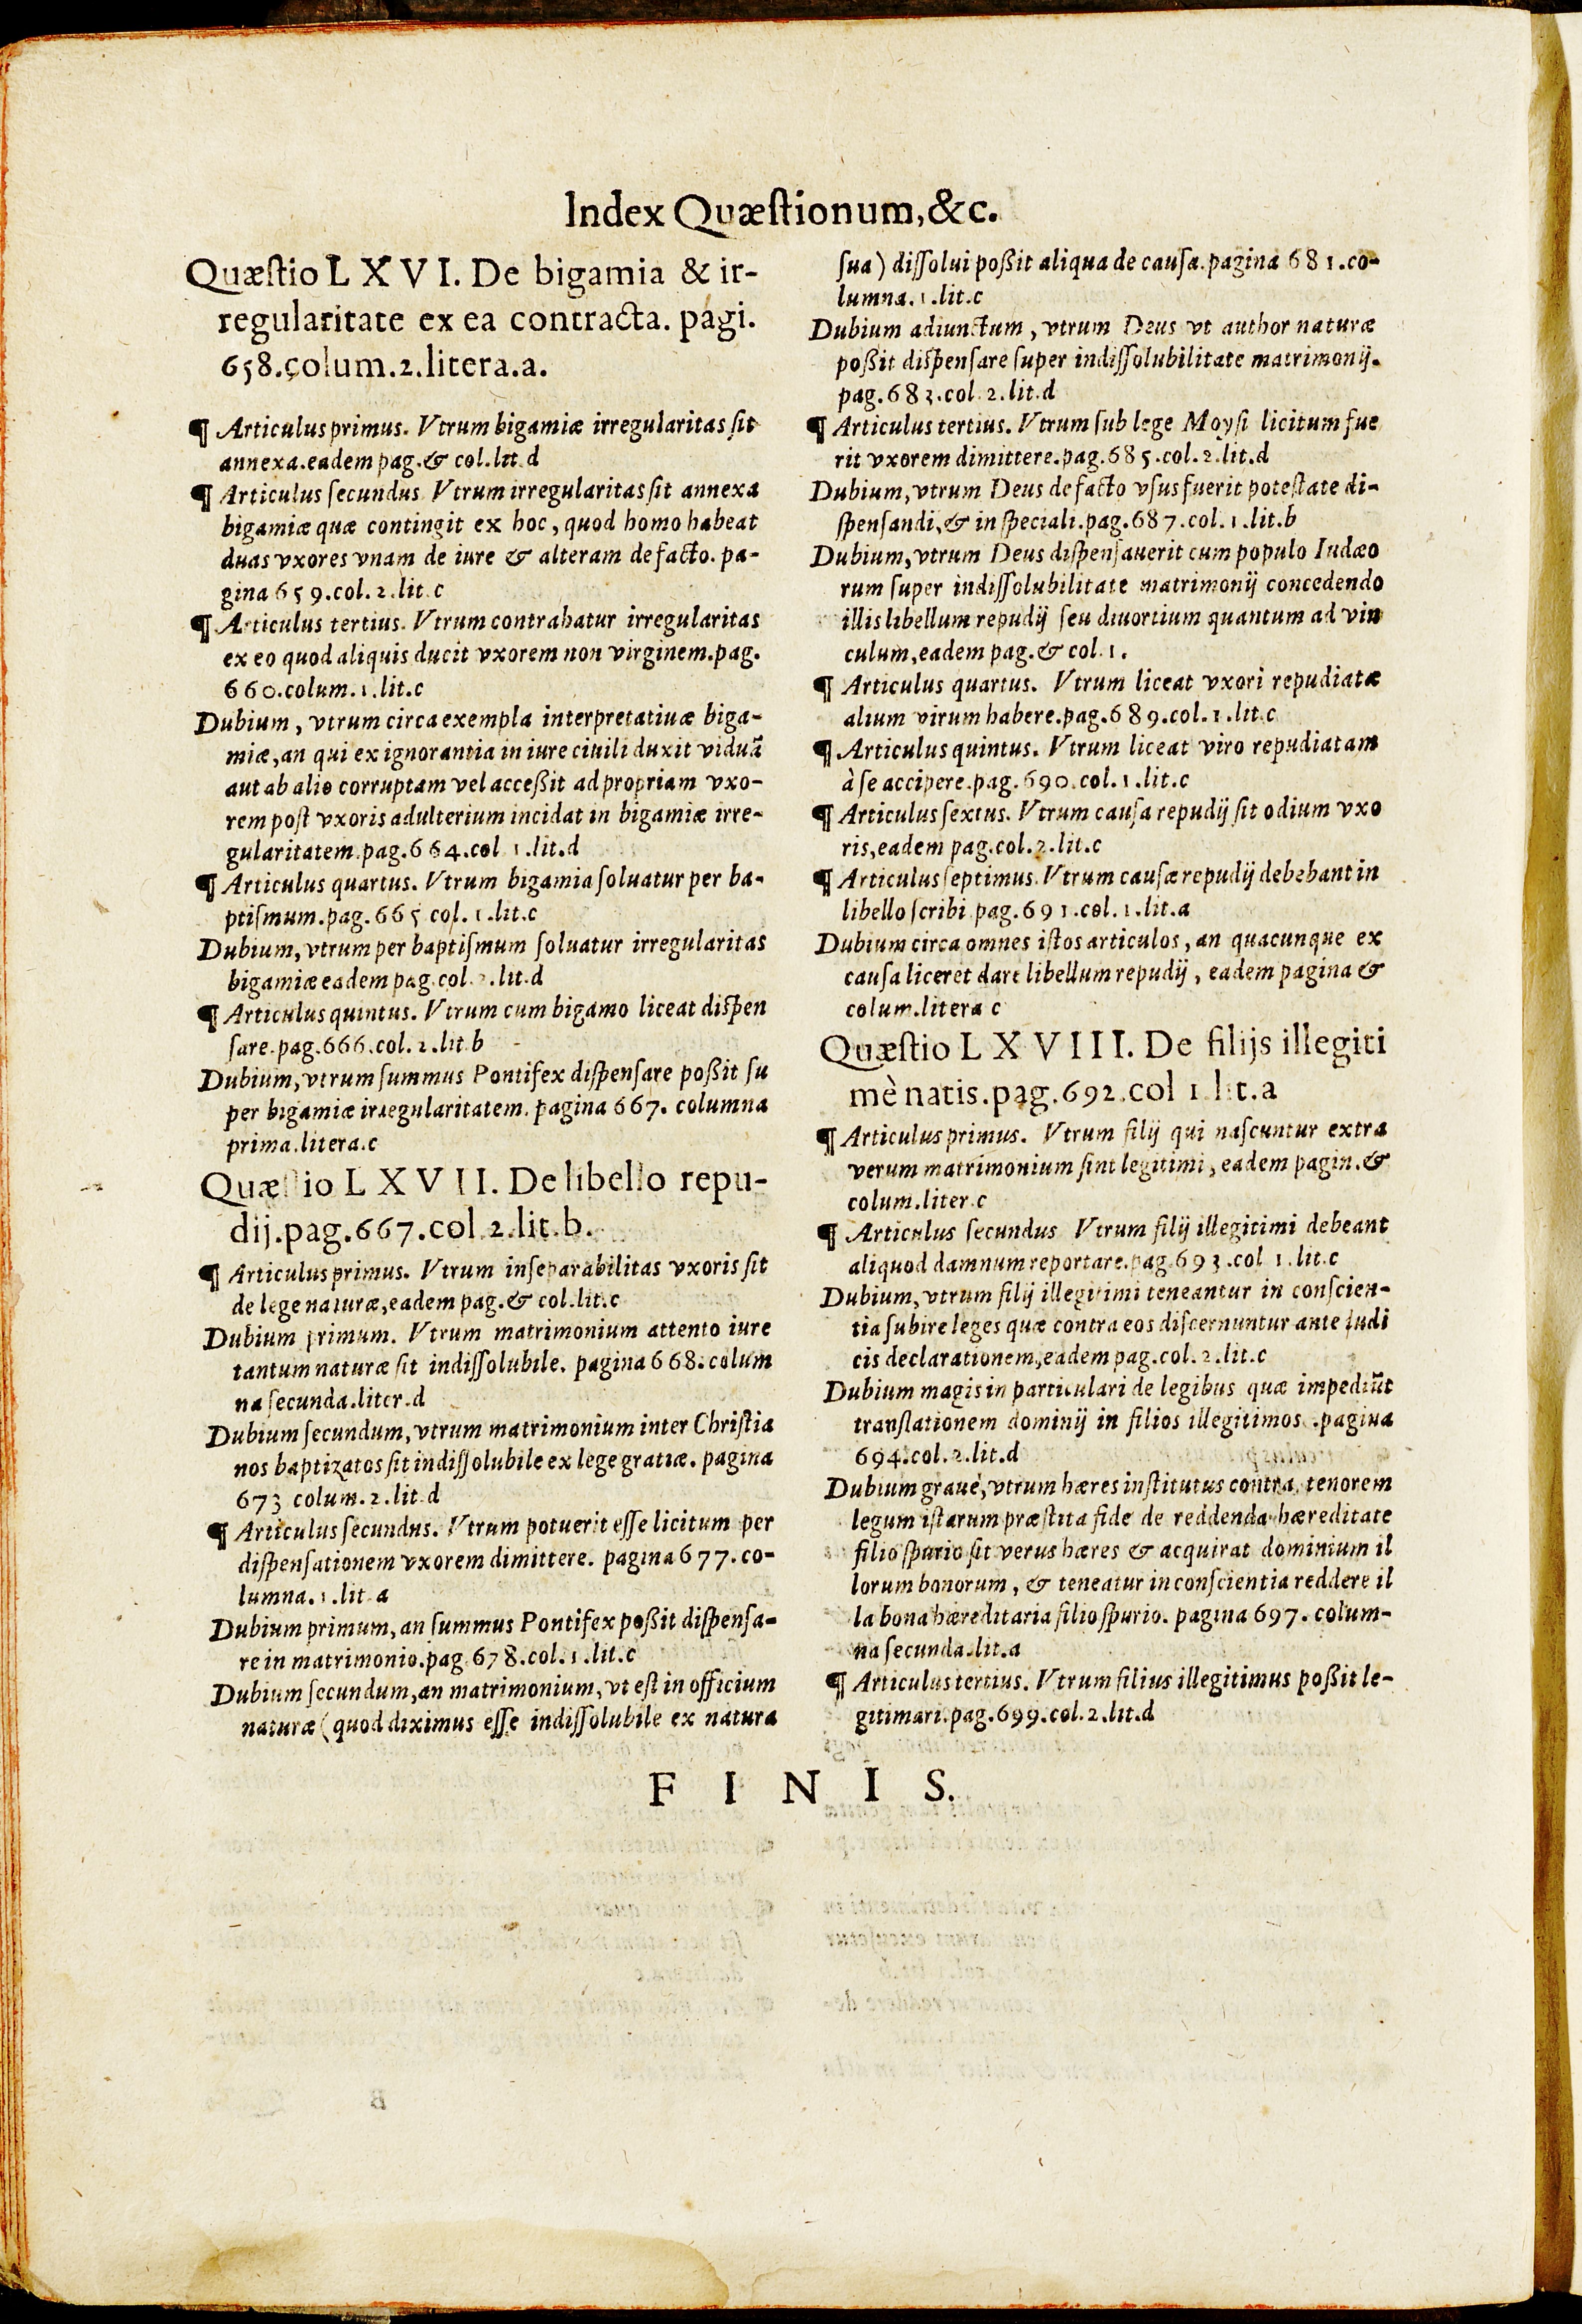 Index Quæstionum,&c.
Quæstio L X V I. De bigamia & ir-
regularitate ex ea contracta. pagi.
658.colum.2.litera.a.
¶ Articulus primus. Vtrum bigamiæ irregularitas sit
annexa.eadem pag.& col.lit.d
¶ Articulus secundus Vtrum irregularitas sit annexa
bigamiæ quæ contingit ex hoc, quod homo habeat
duas vxores vnam de iure & alteram de facto. pa-
gina 659.col.2.lit.c
¶ Articulus tertius. Vtrum contrahatur irregularitas
ex eo quod aliquis ducit vxorem non virginem.pag.
660.colum.1.lit.c
Dubium, vtrum circa exempla interpretatiuæ biga-
miæ, an qui ex ignorantia in iure ciuili duxit viduã
aut ab alio corruptam vel acceßit ad propriam vxo-
rem post vxoris adulterium incidat in bigamiæ irre-
gularitatem.pag.664.col 1.lit.d
¶ Articulus quartus. Vtrum bigamia soluatur per ba-
ptismum.pag.665 col.1.lit.c
Dubium, vtrum per baptismum soluatur irregularitas
bigamiæ eadem pag.col.2.lit.d
¶ Articulus quintus. Vtrum cum bigamo liceat dispen
sare.pag.666.col.2.lit.b
Dubium, vtrum summus Pontifex dispensare poßit su
per bigamiæ irregularitatem. pagina 667. columna
prima.litera.c
Quæstio L X V I I. De libello repu-
dij.pag.667.col.2.lit.b.
¶ Articulus primus. Vtrum inseparabilitas vxoris sit
de lege naturæ, eadem pag.& col.lit.c
Dubium primum. Vtrum matrimonium attento iure
tantum naturæ sit indissolubile. pagina 668. colum
na secunda.liter.d
Dubium secundum, vtrum matrimonium inter Christia
nos baptizatos sit indissolubile ex lege gratiæ. pagina
673 colum.2.lit.d
¶ Articulus secundus. Vtrum potuerit esse licitum per
dispensationem vxorem dimittere. pagina 677. co-
lumna.1.lit.a
Dubium primum, an summus Pontifex poßit dispensa-
re in matrimonio.pag.678.col.1.lit.c
Dubium secundum, an matrimonium, vt est in officium
naturæ (quod diximus esse indissolubile ex natura
sua) dissolui poßit aliqua de causa.pagina 681.co-
lumna.1.lit.c
Dubium adiunctum, vtrum Deus vt author naturæ
poßit dispensare super indissolubilitate matrimonij.
pag.683.col.2.lit.d
¶ Articulus tertius. Vtrum sub lege Moysi licitum fue
rit vxorem dimittere.pag.685.col.2.lit.d
Dubium, vtrum Deus de facto vsus fuerit potestate di-
spensandi, & in speciali.pag.687.col.1.lit.b
Dubium, vtrum Deus dispensauerit cum populo Iudæo
rum super indissolubilitate matrimonij concedendo
illis libellum repudij seu diuortium quantum ad vin
culum, eadem pag.& col.1.
¶ Articulus quartus. Vtrum liceat vxori repudiatæ
alium virum habere.pag.689.col.1.lit.c
¶ Articulus quintus. Vtrum liceat viro repudiatam
à se accipere.pag.690.col.1.lit.c
¶ Articulus sextus. Vtrum causa repudij sit odium vxo
ris, eadem pag.col.2.lit.c
¶ Articulus septimus. Vtrum causæ repudij debebant in
libello scribi pag.691.col.1.lit.a
Dubium circa omnes istos articulos, an quacunque ex
causa liceret dare libellum repudij, eadem pagina &
colum.litera c
Quæstio L X V I I I. De filijs illegiti
mè natis.pag.692.col 1 lit.a
¶ Articulus primus. Vtrum filij qui nascuntur extra
verum matrimonium sint legitimi, eadem pagin.&
colum.liter.c
¶ Articulus secundus Vtrum filij illegitimi debeant
aliquod damnum reportare.pag.693.col 1.lit.c
Dubium, vtrum filij illegitimi teneantur in conscien-
tia subire leges quæ contra eos discernuntur ante Iudi
cis declarationem, eadem pag.col.2.lit.c
Dubium magis in particulari de legibus quæ impediũt
translationem dominij in filios illegitimos .pagina
694.col.2.lit.d
Dubium graue, vtrum hæres institutus contra tenorem
legum istarum præstita fide de reddenda hæreditate
filio spurio sit verus hæres & acquirat dominium il
lorum bonorum, & teneatur in conscientia reddere il
la bona hæreditaria filio spurio. pagina 697. colum-
na secunda.lit.a
¶ Articulus tertius. Vtrum filius illegitimus poßit le-
gitimari.pag.699.col.2.lit.d
F I N I S.